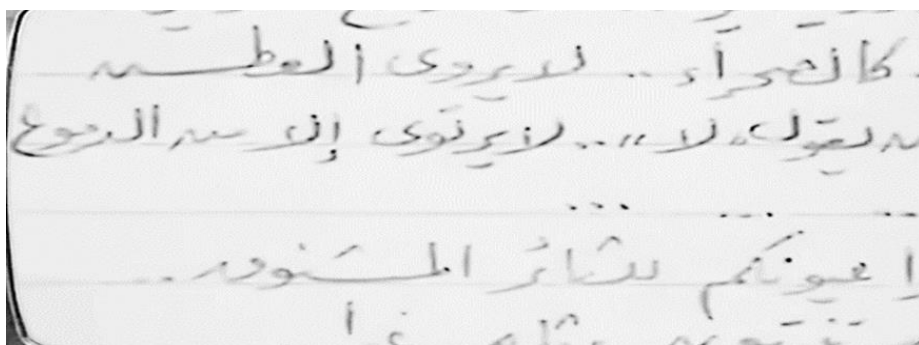 كالصحرآء .. لايروى العطش
يقول „لا„.. لايرتوى إلا من الدموع
.. ... ...
عيونكم للثائر المشنوق..